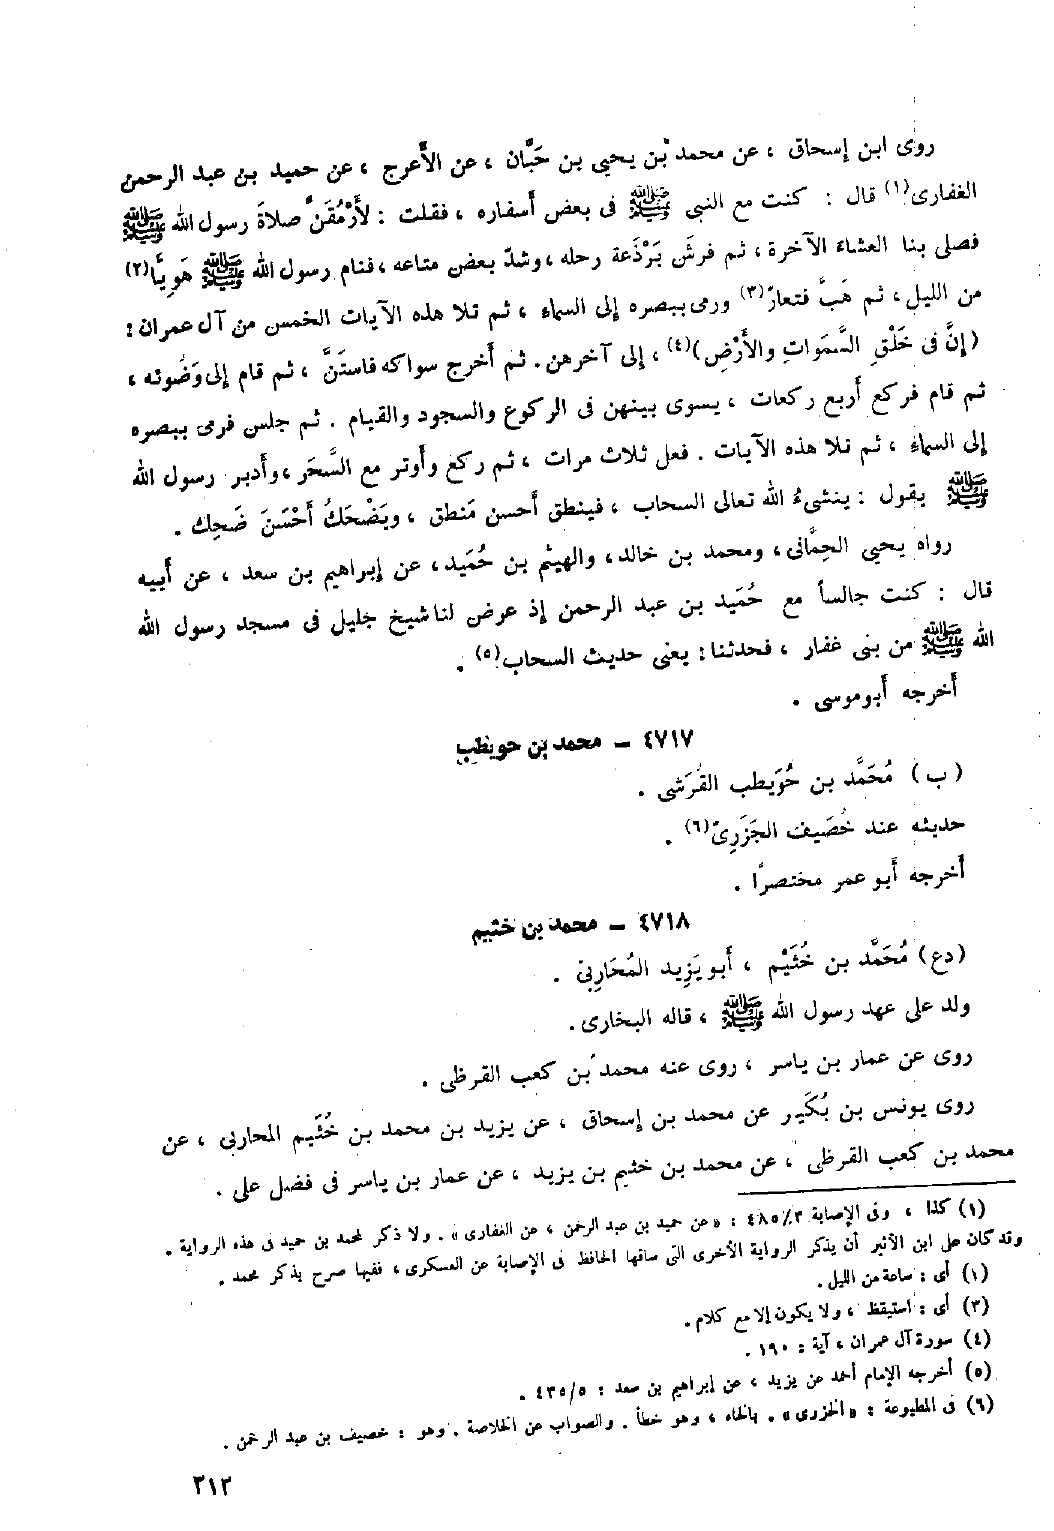 روى ابن إسحاق ، عن محمد بن يحيى بن حَبَّان ، عن الأَعرج ، عن حميد بن عبد الرحمن
الغفارى(١) قال : كنت مع النبي ﷺ فى بعض أَسفاره ، فقلت : لأَرْمُقَنَّ صلاةَ رسول الله ﷺ
فصلى بنا العشاء الآخرة ، ثم فرشَ بَرْذَعة رحله ، وشدّ بعض متاعه ، فنام رسول الله ﷺ هَوِيًّا(٢)
من الليل ، ثم هَبَّ فتعارّ(٣) ورمى ببصره إلى السماء ، ثم تلا هذه الآيات الخمس من آل عمران :
(إنَّ فى خَلْقِ السَّمَواتِ والأَرْضِ)(٤) ، إلى آخرهن . ثم أَخرج سواكه فاستَنَّ ، ثم قام إلى وَضُوئه ،
ثم قام فركع أَربع ركعات ، يسوى بينهن فى الركوع والسجود والقيام . ثم جلس فرمى ببصره
إلى السماءِ ، ثم تلا هذه الآيات . فعل ثلاث مرات ، ثم ركع وأَوتر مع السَّحَر ، وأَدبر رسول الله
ﷺ يقول : ينشىءُ الله تعالى السحاب ، فينطق أَحسن مَنطق ، ويَضْحَكُ أَحْسَنَ ضَحِك .
رواه يحيى الحِمَّانى ، ومحمد بن خالد ، والهيثم بن حُمَيد ، عن إبراهيم بن سعد ، عن أَبيه
قال : كنت جالساً مع حُمَيد بن عبد الرحمن إذ عرض لنا شيخ جليل فى مسجد رسول الله
الله ﷺ من بنى غفار ، فحدثنا : يعنى حديث السحاب(٥) .
أَخرجه أَبو موسى .
٤٧١٧ – محمد بن حويطب
(ب) مُحَمَّد بن حُوَيطب القُرَشى .
حديثه عند خُصَيف الجَزَرِىّ(٦) .
أَخرجه أَبو عمر مختصرًا .
٤٧١٨ – محمد بن خثيم
(دع) مُحَمَّد بن خُثَيْم ، أَبو يَزِيد المُحَارِبىّ .
ولد على عهد رسول الله ﷺ ، قاله البخارى .
روى عن عمار بن ياسر ، روى عنه محمد بن كعب القرظى .
روى يونس بن بُكَير عن محمد بن إسحاق ، عن يزيد بن محمد بن خُثَيم المحاربى ، عن
محمد بن كعب القرظى ، عن محمد بن خثيم بن يزيد ، عن عمار بن ياسر فى فضل على .
(١) كذا ، وفى الإصابة ٣/٤٨٥ : «عن حميد بن عبد الرحمن ، عن الغفارى» . ولا ذكر لمحمد بن حميد فى هذه الرواية .
وقد كان على ابن الأثير أن يذكر الرواية الأخرى التى ساقها الحافظ فى الإصابة عن العسكرى ، ففيها صرح بذكر محمد .
(١) أى : ساعة من الليل .
(٣) أى : استيقظ ، ولا يكون إلا مع كلام .
(٤) سورة آل عمران ، آية : ١٩٠ .
(٥) أخرجه الإمام أحمد عن يزيد ، عن إبراهيم بن سعد : ٤٣٥/٥ .
(٦) فى المطبوعة : «الخزرى» . بالخاء ، وهو خطأ . والصواب عن الخلاصة . وهو : خصيف بن عبد الرحمن .
٣١٣